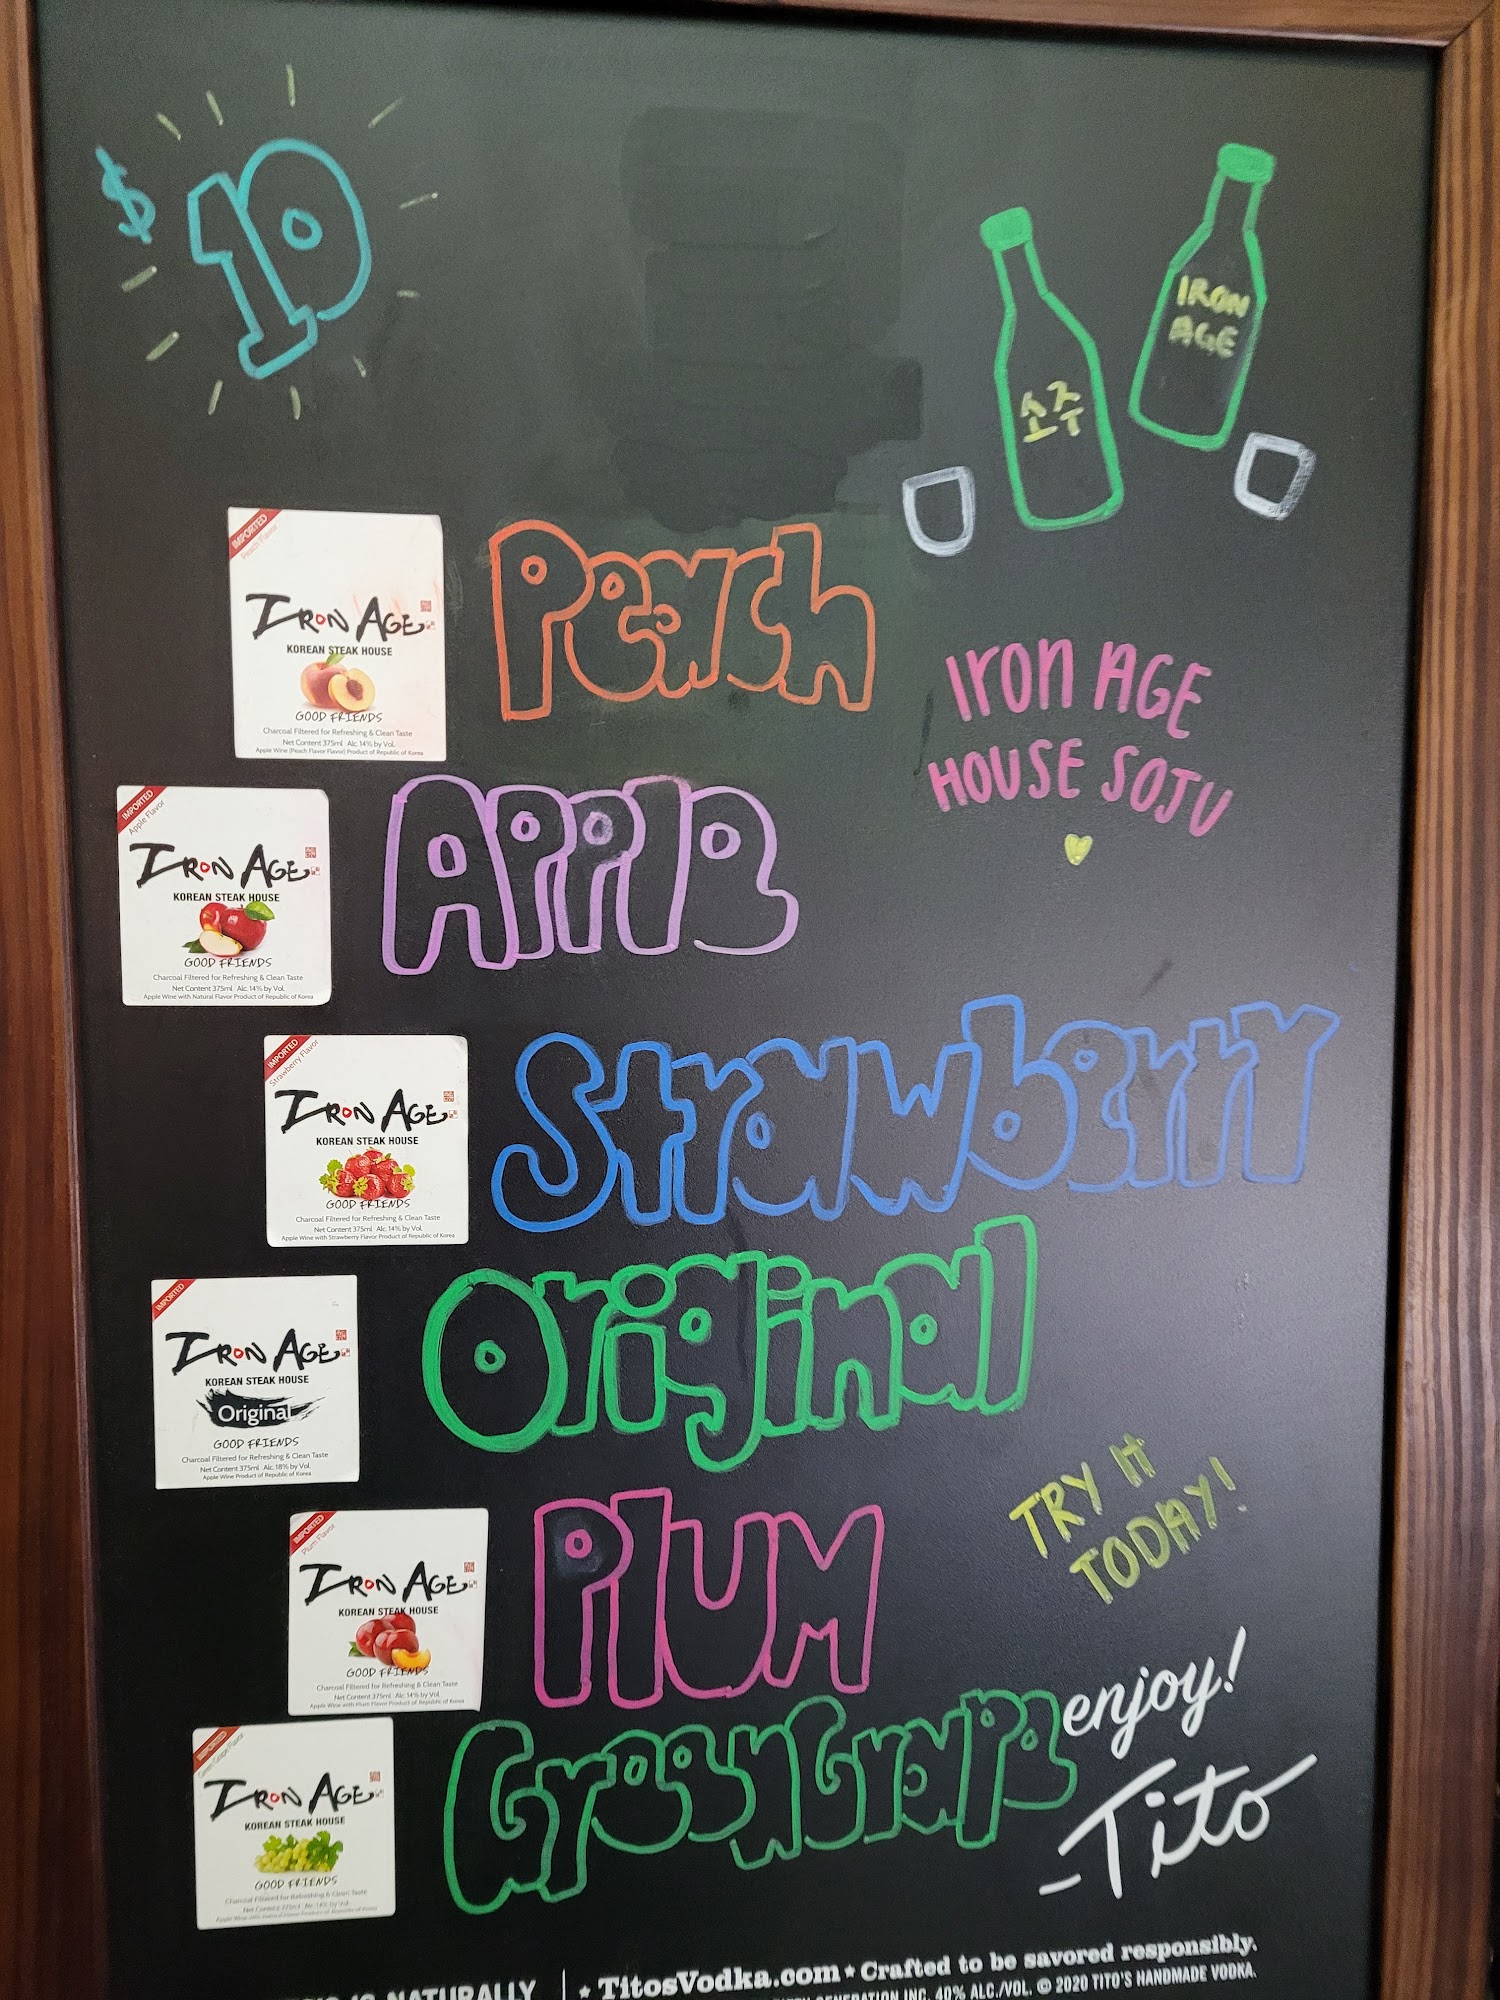 $10
소주
IRON
AGE
IMPORTED
Peach Flavor
IRON AGE
KOREAN STEAK HOUSE
GOOD FRIENDS
Charcoal Filtered for Refreshing & Clean Taste
Net Content 375ml Alc.14% by Vol.
Apple Wine (Peach Flavor Flavor) Product of Republic of Korea
Peach
IRON AGE
HOUSE SOJU
IMPORTED
Apple Flavor
IRON AGE
KOREAN STEAK HOUSE
GOOD FRIENDS
Charcoal Filtered for Refreshing & Clean Taste
Net Content 375ml Alc.14% by Vol.
Apple Wine with Natural Flavor Product of Republic of Korea
Apple
IMPORTED
Strawberry Flavor
IRON AGE
KOREAN STEAK HOUSE
GOOD FRIENDS
Charcoal Filtered for Refreshing & Clean Taste
Net Content 375ml Alc.14% by Vol.
Apple Wine with Strawberry Flavor Product of Republic of Korea
Strawberry
IMPORTED
IRON AGE
KOREAN STEAK HOUSE
Original
GOOD FRIENDS
Charcoal Filtered for Refreshing & Clean Taste
Net Content 375ml Alc.18% by Vol.
Apple Wine Product of Republic of Korea
Original
TRY It
TODAY!
IMPORTED
Plum Flavor
IRON AGE
KOREAN STEAK HOUSE
GOOD FRIENDS
Charcoal Filtered for Refreshing & Clean Taste
Net Content 375ml Alc.14% by Vol.
Apple Wine with Plum Flavor Product of Republic of Korea
PlUM
IMPORTED
Green Grape Flavor
IRON AGE
KOREAN STEAK HOUSE
GOOD FRIENDS
Charcoal Filtered for Refreshing & Clean Taste
Net Content 375ml Alc.14% by Vol.
Green Grape
enjoy!
-Tito
NATURALLY
★ TitosVodka.com ★ Crafted to be savored responsibly.
GENERATION INC. 40% ALC./VOL. © 2020 TITO'S HANDMADE VODKA.